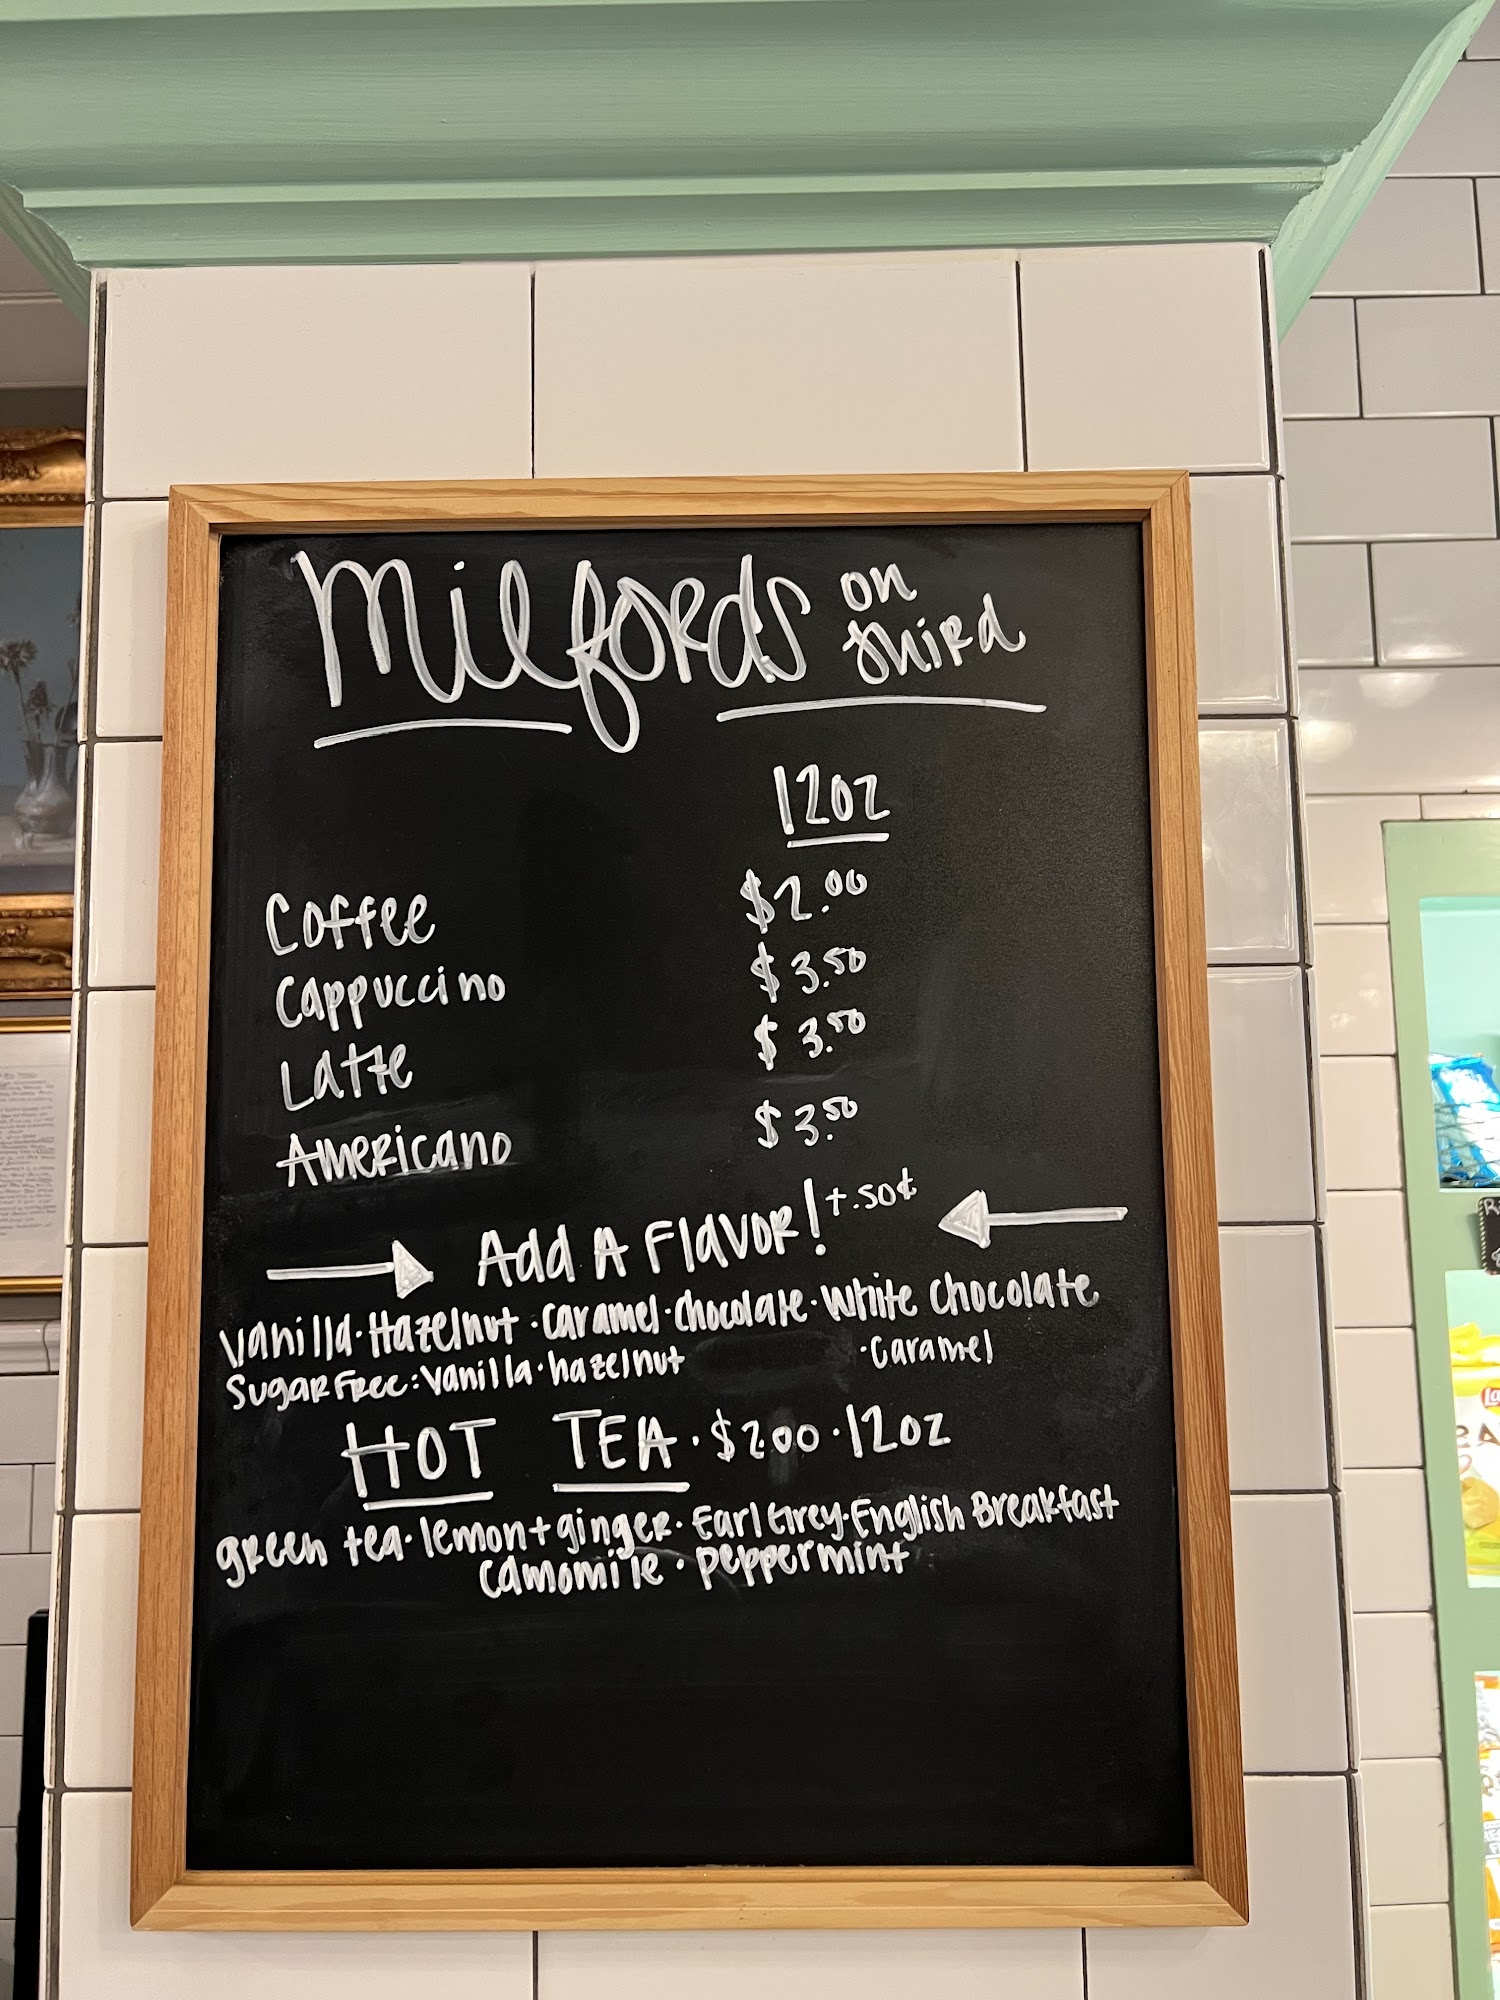 Milfords on third
12oz
Coffee $2.00
Cappuccino $3.50
Latte $3.50
Americano $3.50
Add A Flavor! +.50¢
Vanilla·Hazelnut·Caramel·Chocolate·White Chocolate
Sugar Free: Vanilla·hazelnut ·Caramel
HOT TEA·$2.00·12oz
green tea·lemon+ginger·Earl Grey·English Breakfast
camomile·peppermint